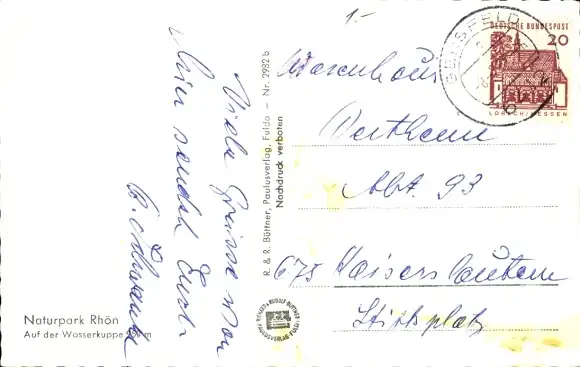 1.-
Viele Grüsse von
hier sendet Euch
Naturpark Rhön
Auf der Wasserkuppe
R. & R. Büttner, Paulusverlag, Fulda – Nr. 2982 b
Nachdruck verboten
GERSFELD
DEUTSCHE BUNDESPOST
20
LORSCH/HESSEN
Warenhaus
Wertheim
Abt. 93
675 Kaiserslautern
Stiftsplatz